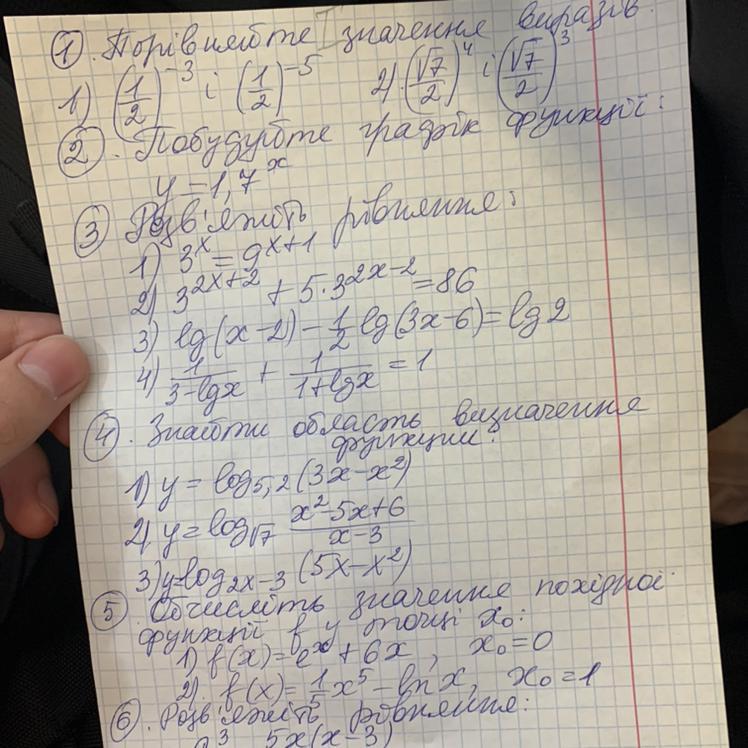 ① Порівняйте значення виразів.
1) (1/2)^-3 і (1/2)^-5 2) (√7/2)^4 і (√7/2)^3
② Побудуйте графік функції:
y = 1,7^x
③ Розв'яжіть рівняння:
1) 3^x = 9^x+1
2) 3^2x+2 + 5·3^2x-2 = 86
3) lg(x-2) - 1/2 lg(3x-6) = lg2
4) 1/(3-lgx) + 1/(1+lgx) = 1
④. Знайти область визначення
функции.
1) y = log5,2 (3x-x²)
2) y = log√7 (x²-5x+6)/(x-3)
3) y=log2x-3 (5x-x²)
⑤. Обчисліть значення похідної
функції f у точці x₀:
1) f(x)=e^x+6x, x₀=0
2). f(x)= 1/5 x⁵ - lnx, x₀=1
⑥. Розв'яжіть рівняння:
3 5x(x-3)